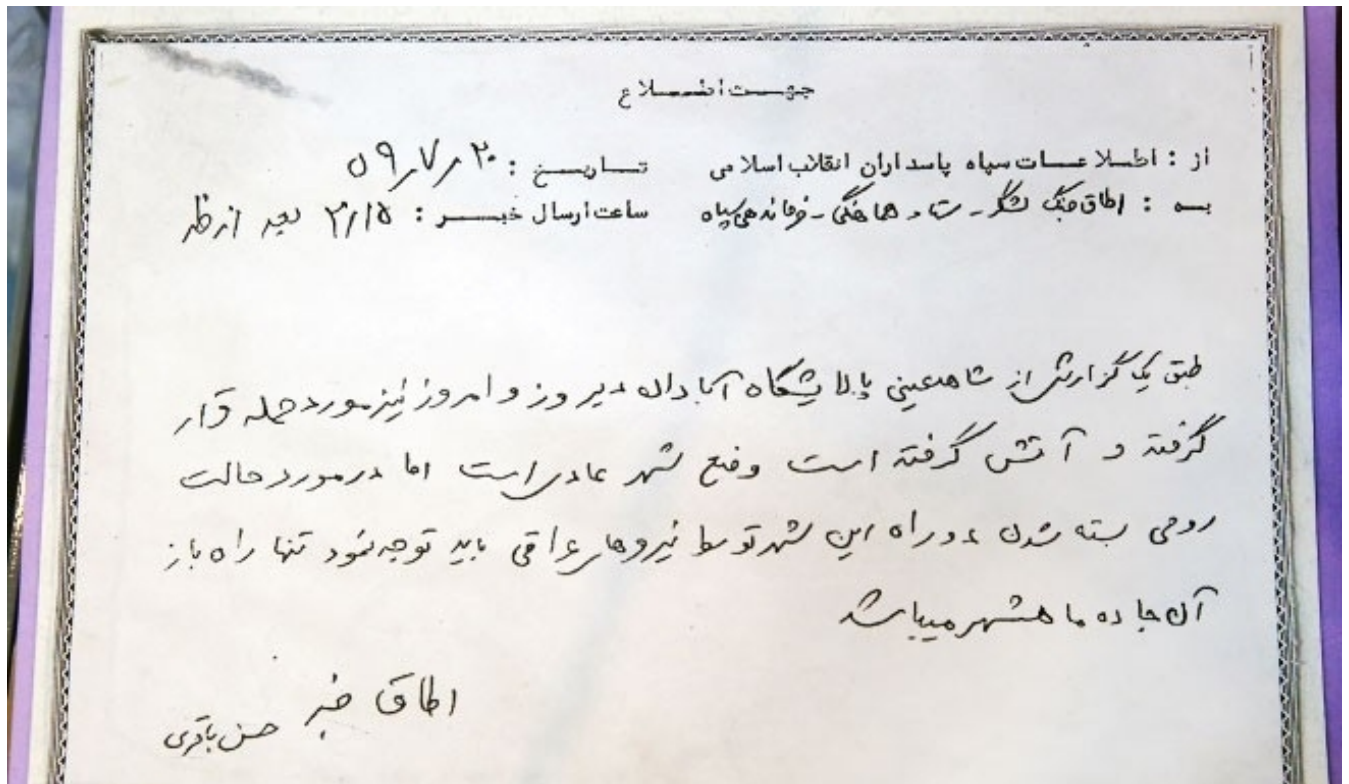 جهت اطلاع
از : اطلاعات سپاه پاسداران انقلاب اسلامی تاریخ : ۵۹٫۷٫۲۰
به : اطاق جنگ لشگر - ستاد هماهنگی - فرماندهی سپاه ساعت ارسال خبر : ۳/۱۵ بعد از ظهر
طبق یک گزارش از شاهد عینی پالایشگاه آبادان دیروز و امروز نیز مورد حمله قرار
گرفته و آتش گرفته است وضع شهر عادی است اما در مورد حالت
روحی بسته شدن دو راه این شهر توسط نیروهای عراقی باید توجه نمود تنها راه باز
آن جاده ماهشهر میباشد
اطاق خبر
حسن باقری